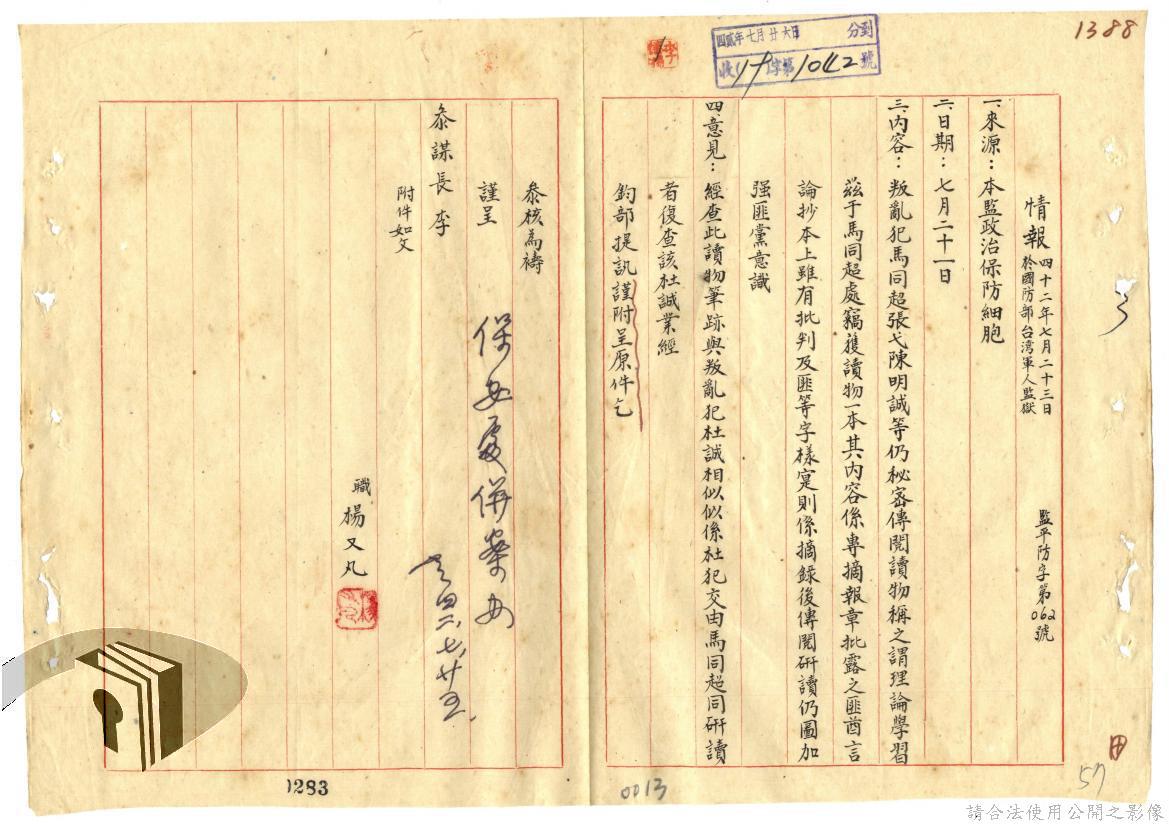 1388
四貳年七月廿六日
分到
收
字第1042號
情報 四十二年七月二十三日
於國防部台湾軍人監獄
監平防字第062號
一來源：本監政治保防細胞
二日期：七月二十一日
三內容：叛亂犯馬同超張弋陳明誠等仍秘密傳閱讀物稱之謂理論學習
茲于馬同超處竊獲讀物一本其內容係專摘報章批露之匪酋言
論抄本上雖有批判及匪等字樣寔則係摘錄後傳閱研讀仍圖加
强匪黨意識
四意見：經查此讀物筆跡與叛亂犯杜誠相似似係杜犯交由馬同超同研讀
者復查該杜誠業經
鈞部提訊謹附呈原件乞
叅核為禱
謹呈
叅謀長李
附件如文
職楊又丸
保安處併案
四二、七、廿五、
57
0013
1283
請合法使用公開之影像